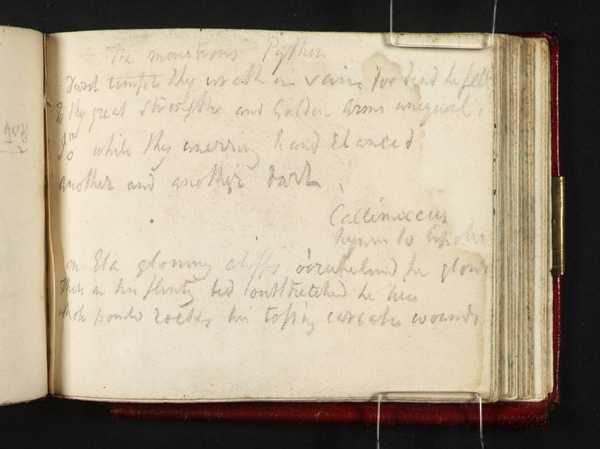 The monstrous Python
Durst tempt thy wrath in vain for dead he fell
To thy great strengths and Golden arms unequal
Io while thy unerring hand Elanced
another and another Dart
Callimacus
hymn to Apollo
on Eta gloomy cliffs o'erwhelmd he glows
on his flinty bed outstretched he lies
rocks his tossing carcase wounds